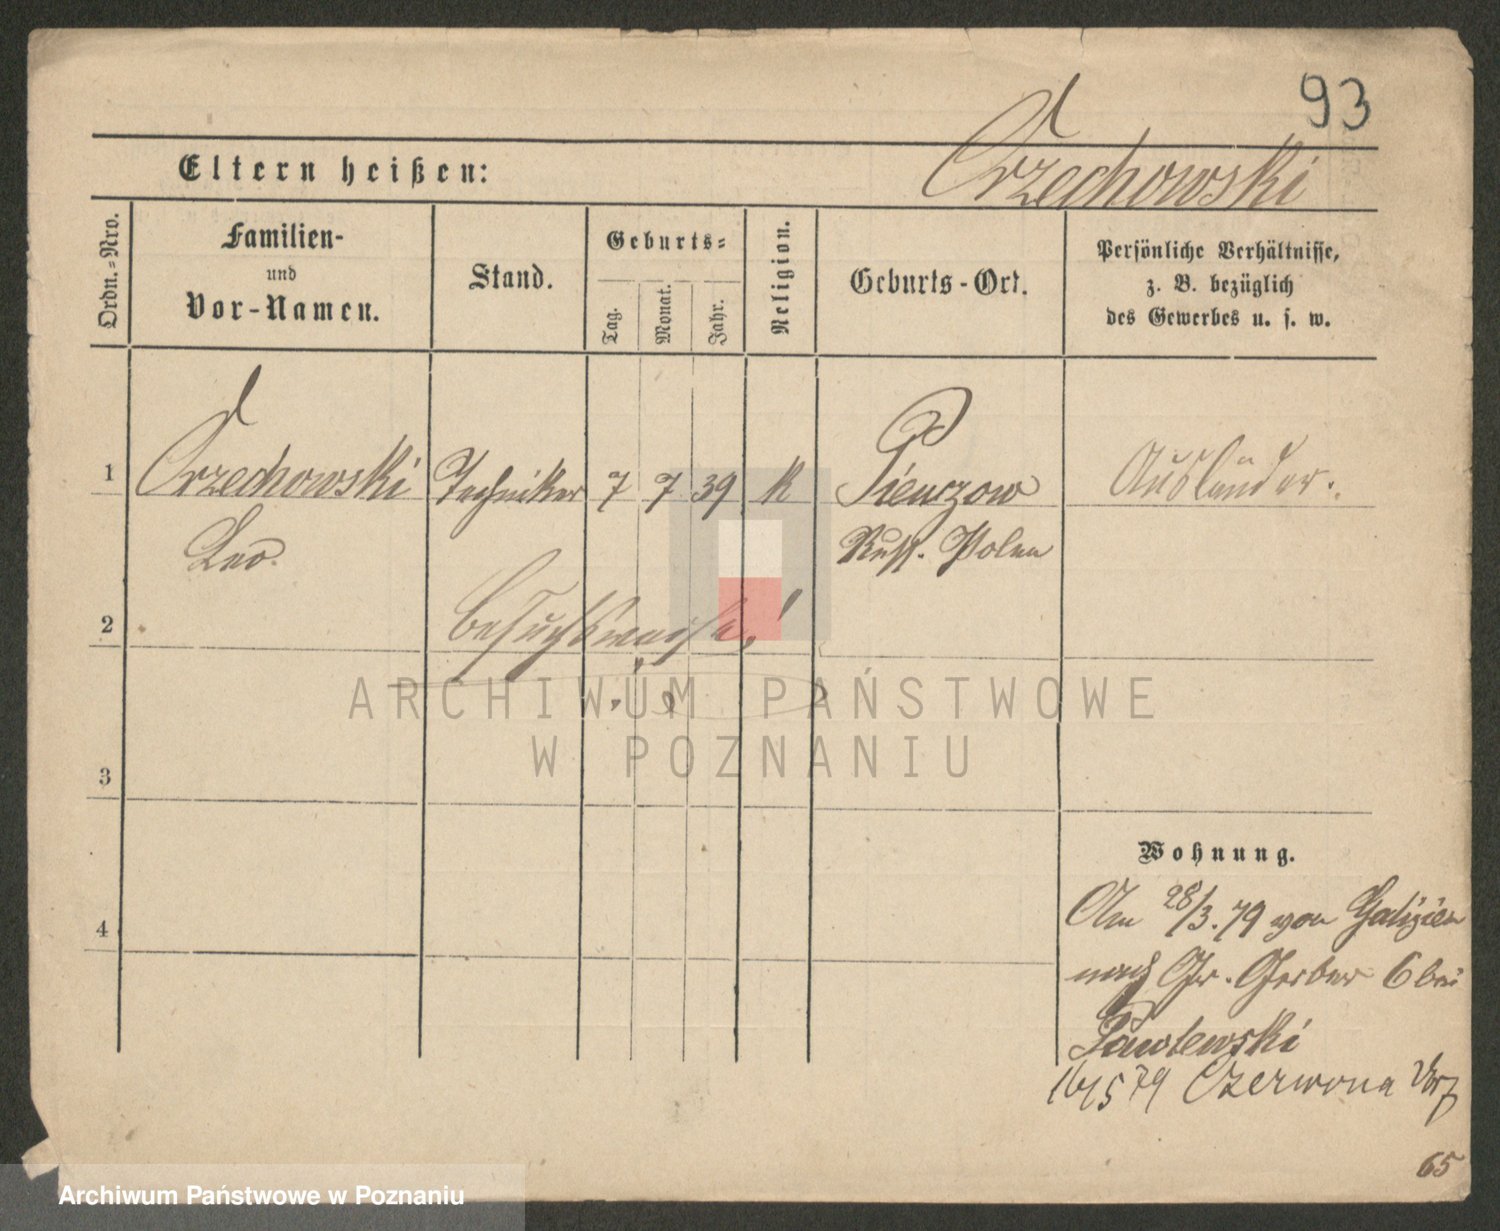 93
Orzechowski
Eltern heißen:
Ordn.-Nro.
Familien-
und
Vor-Namen.
Stand.
Geburts-
Tag.
Monat.
Jahr.
Religion.
Geburts-Ort.
Persönliche Verhältnisse,
z. B. bezüglich
des Gewerbes u. s. w.
1 Orzechowski Techniker 7 7 39 K Pienczow Ausländer.
Leo. Russ. Polen
2
3
4
ARCHIWUM PAŃSTWOWE
W POZNANIU
Wohnung.
Am 28/3.79 von Galizien
nach Gr. Gerber 6 bei
Pawlewski
16/5 79 Czerwona
65
Archiwum Państwowe w Poznaniu